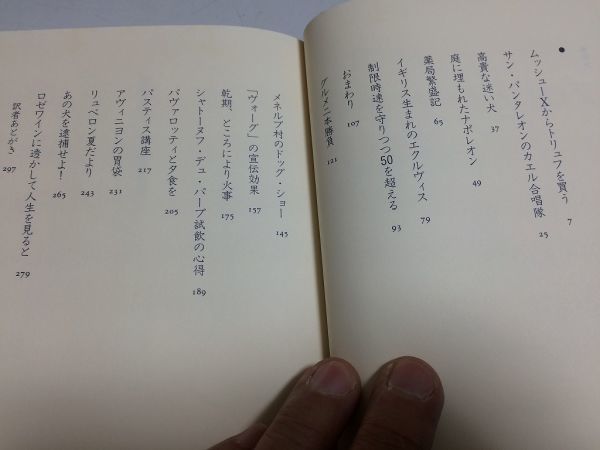 ムッシューXからトリュフを買う 7
サン・パンタレオンのカエル合唱隊 25
高貴な迷い犬 37
庭に埋もれたナポレオン 49
薬局繁盛記 65
イギリス生まれのエクルヴィス 79
制限時速を守りつつ50を超える 93
おまわり 107
グルメ二本勝負 121
メネルブ村のドッグ・ショー 145
「ヴォーグ」の宣伝効果 157
乾期、ところにより火事 175
シャトーヌフ・デュ・パープ試飲の心得 189
パヴァロッティと夕食を 205
パスティス講座 217
アヴィニヨンの胃袋 231
リュベロン夏だより 243
あの犬を逮捕せよ! 265
ロゼワインに透かして人生を見ると 279
訳者あとがき 297